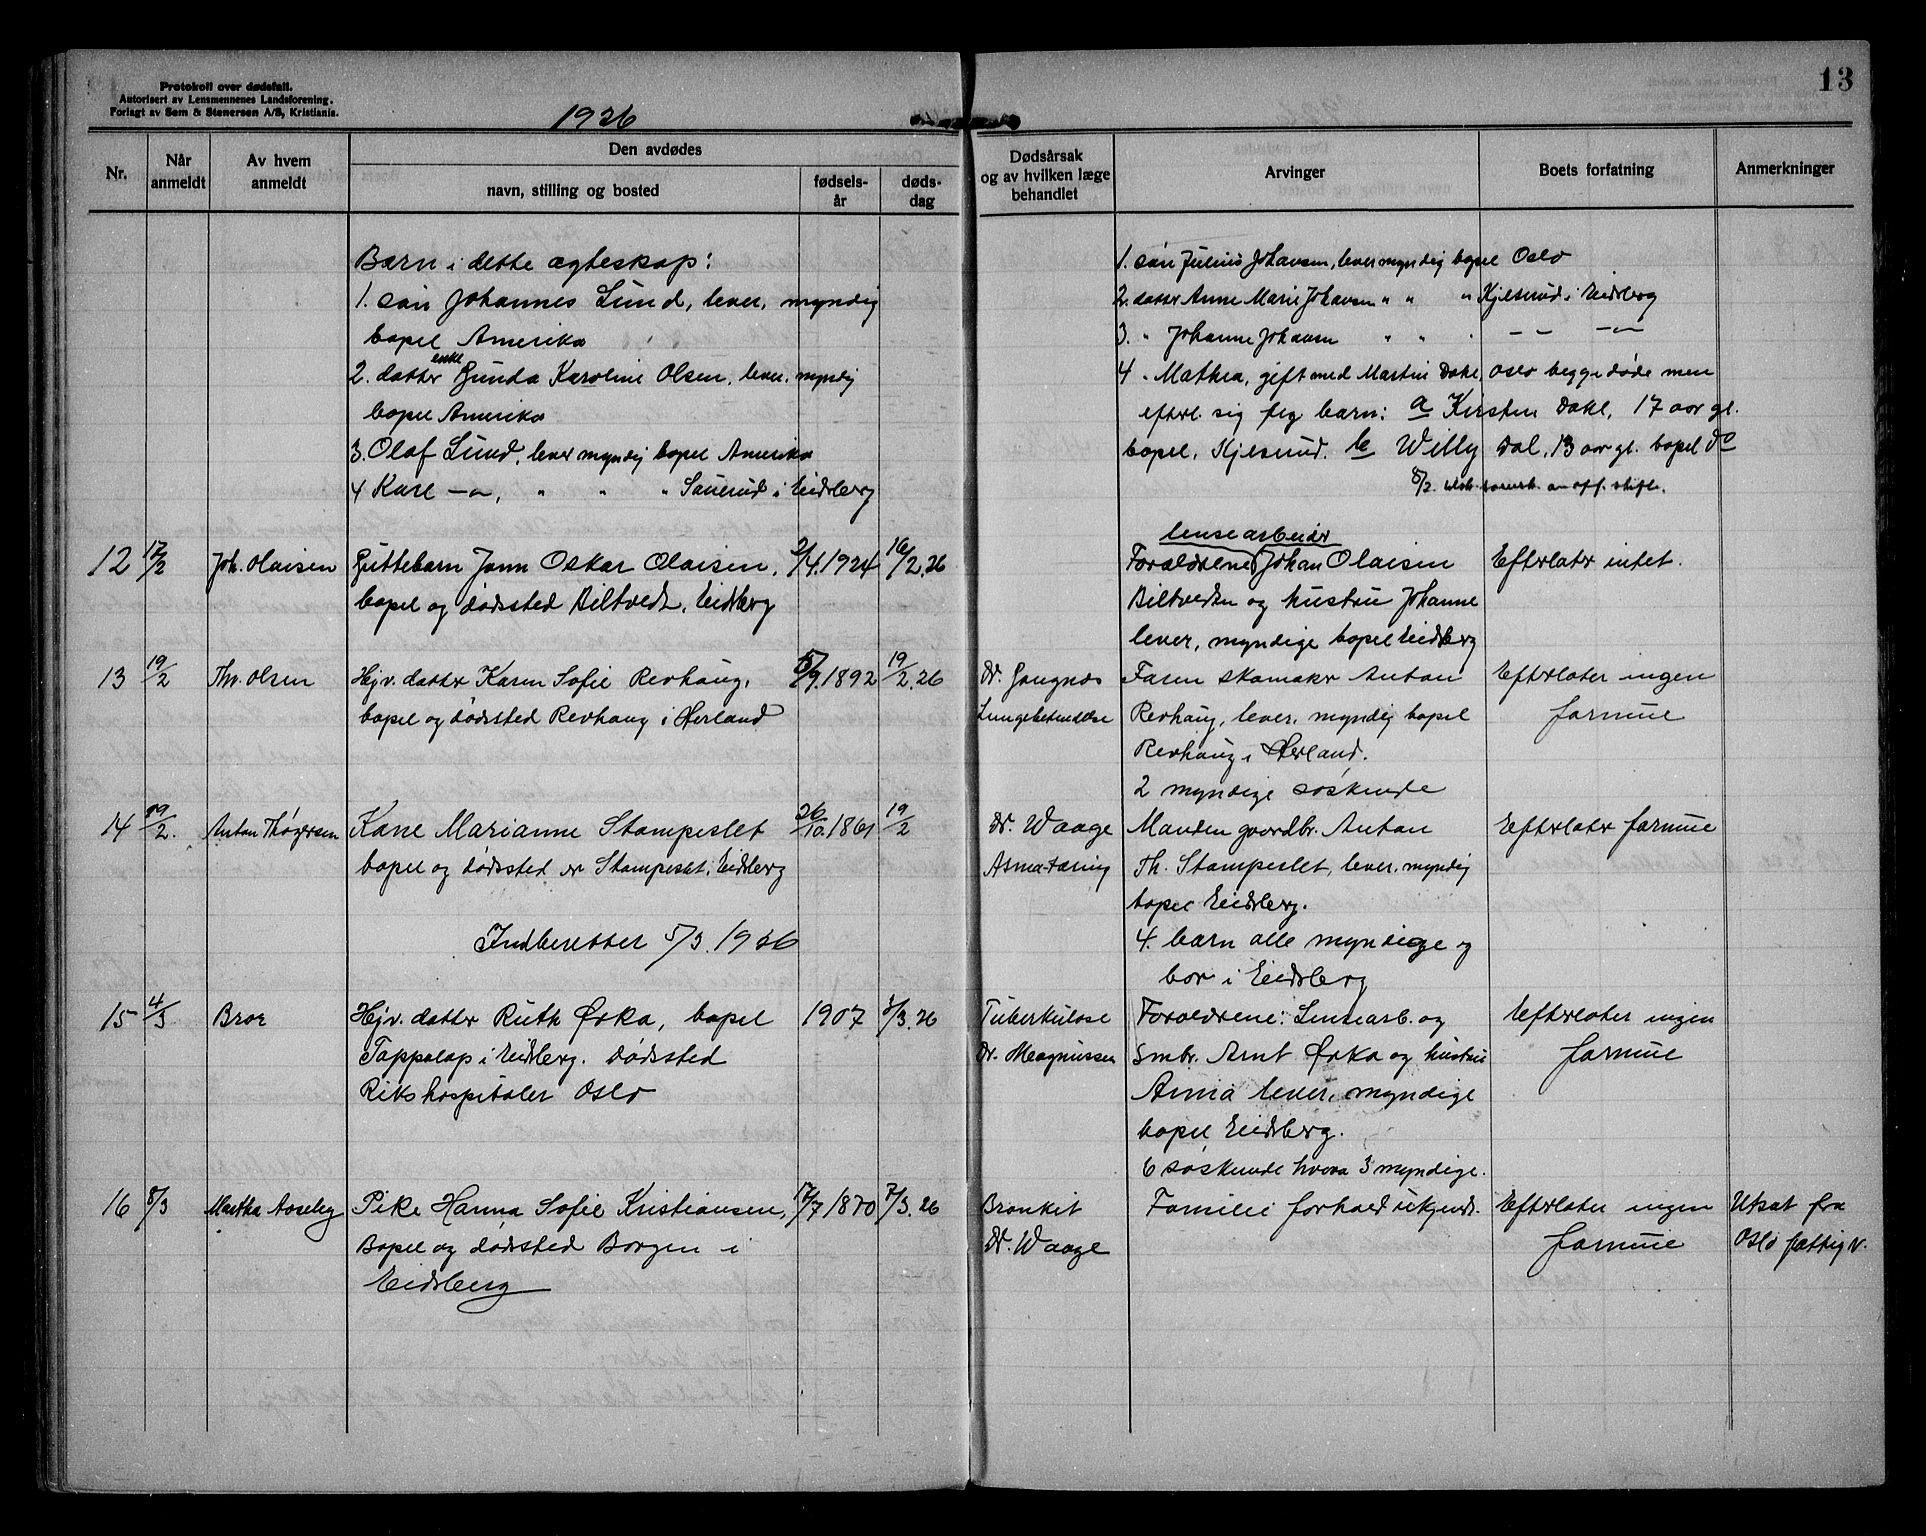 Protokoll over dødsfall.
Autorisert av Lensmennenes Landsforening.
Forlagt av Sem & Stenersen A/S, Kristiania.
1926
13
Nr.
Når anmeldt
Av hvem anmeldt
Den avdødes
navn, stilling og bosted
fødsels-år
døds-dag
Dødsårsak og av hvilken læge behandlet
Arvinger
Boets forfatning
Anmerkninger
Barn i dette ægteskap:
1. søn Johannes Lund, lever, myndig
bopel Amerika
2. datter enke Gunda Karoline Olsen, lever, myndig
bopel Amerika
3. Olaf Lund, lever myndig bopel Amerika
4 Kare -"-, " " " Sauerud i Eidsberg
1. søn Julius Johansen, lever myndig bopel Oslo
2. datter Anne Marie Johansen " " " Kjeserud i Eidsberg
3. " Johanne Johansen " " " -"- -"-
4 " Mathea, gift med Martin Dahl, Oslo begge døde men
efterl. sig flg barn: a Kirsten Dahl, 17 aar gl.
bopel, Kjeserud. b Willy Dal, 13 aar gl. bopel do
12 17/2 Joh. Olaisen Guttebarn Jonn Oskar Olaisen, 2/4.1924 16/2.26
bopel og dødssted Biltvedt, Eidsberg
lensearbeider
Forældrene Johan Olaisen Efterlater intet.
Biltvedt og hustru Johanne
lever, myndige bopel Eidsberg
13 19/2 Th. Olsen Hjv. datter Karen Sofie Revhaug, 5/9.1892 19/2.26 Dr. Gangnæs Faren skomaker Anton Efterlater ingen
bopel og dødssted Revhaug i Herland Lungebetændelse Revhaug, lever, myndig bopel formue
Revhaug i Herland.
2 myndige søskende
14 19/2. Anton Thøgersen Kone Marianne Stampeslet 26/10.1861 19/2 Dr. Waage Manden gaardbr. Anton Efterlater formue
bopel og dødssted er Stampeslet, Eidsberg Asma tæring Th. Stampeslet, lever, myndig
bopel Eidsberg.
Indberettet 5/3.1926
4. barn alle myndige og
bor i Eidsberg
15 4/3 Bror Hjv. datter Ruth Ørka, bopel 1907 3/3.26 Tuberkulose Forældrene: Lensearb. og Efterlater ingen
Toppolap i Eidsberg. Dødssted Dr. Magnussen Smbr. Arnt Ørka og hustru formue
Rikshospitalet Oslo Anna lever, myndige
bopel Eidsberg.
6 søskende hvorav 3 myndige.
16 8/3 Martha Aaseby Pike Hanna Sofie Kristiansen, 17/7 1870 7/3.26 Bronkit Familieforhold ukjendt. Efterlater ingen Utsat fra
Bopel og dødssted Borgen i Dr. Waage formue Oslo fattigv.
Eidsberg